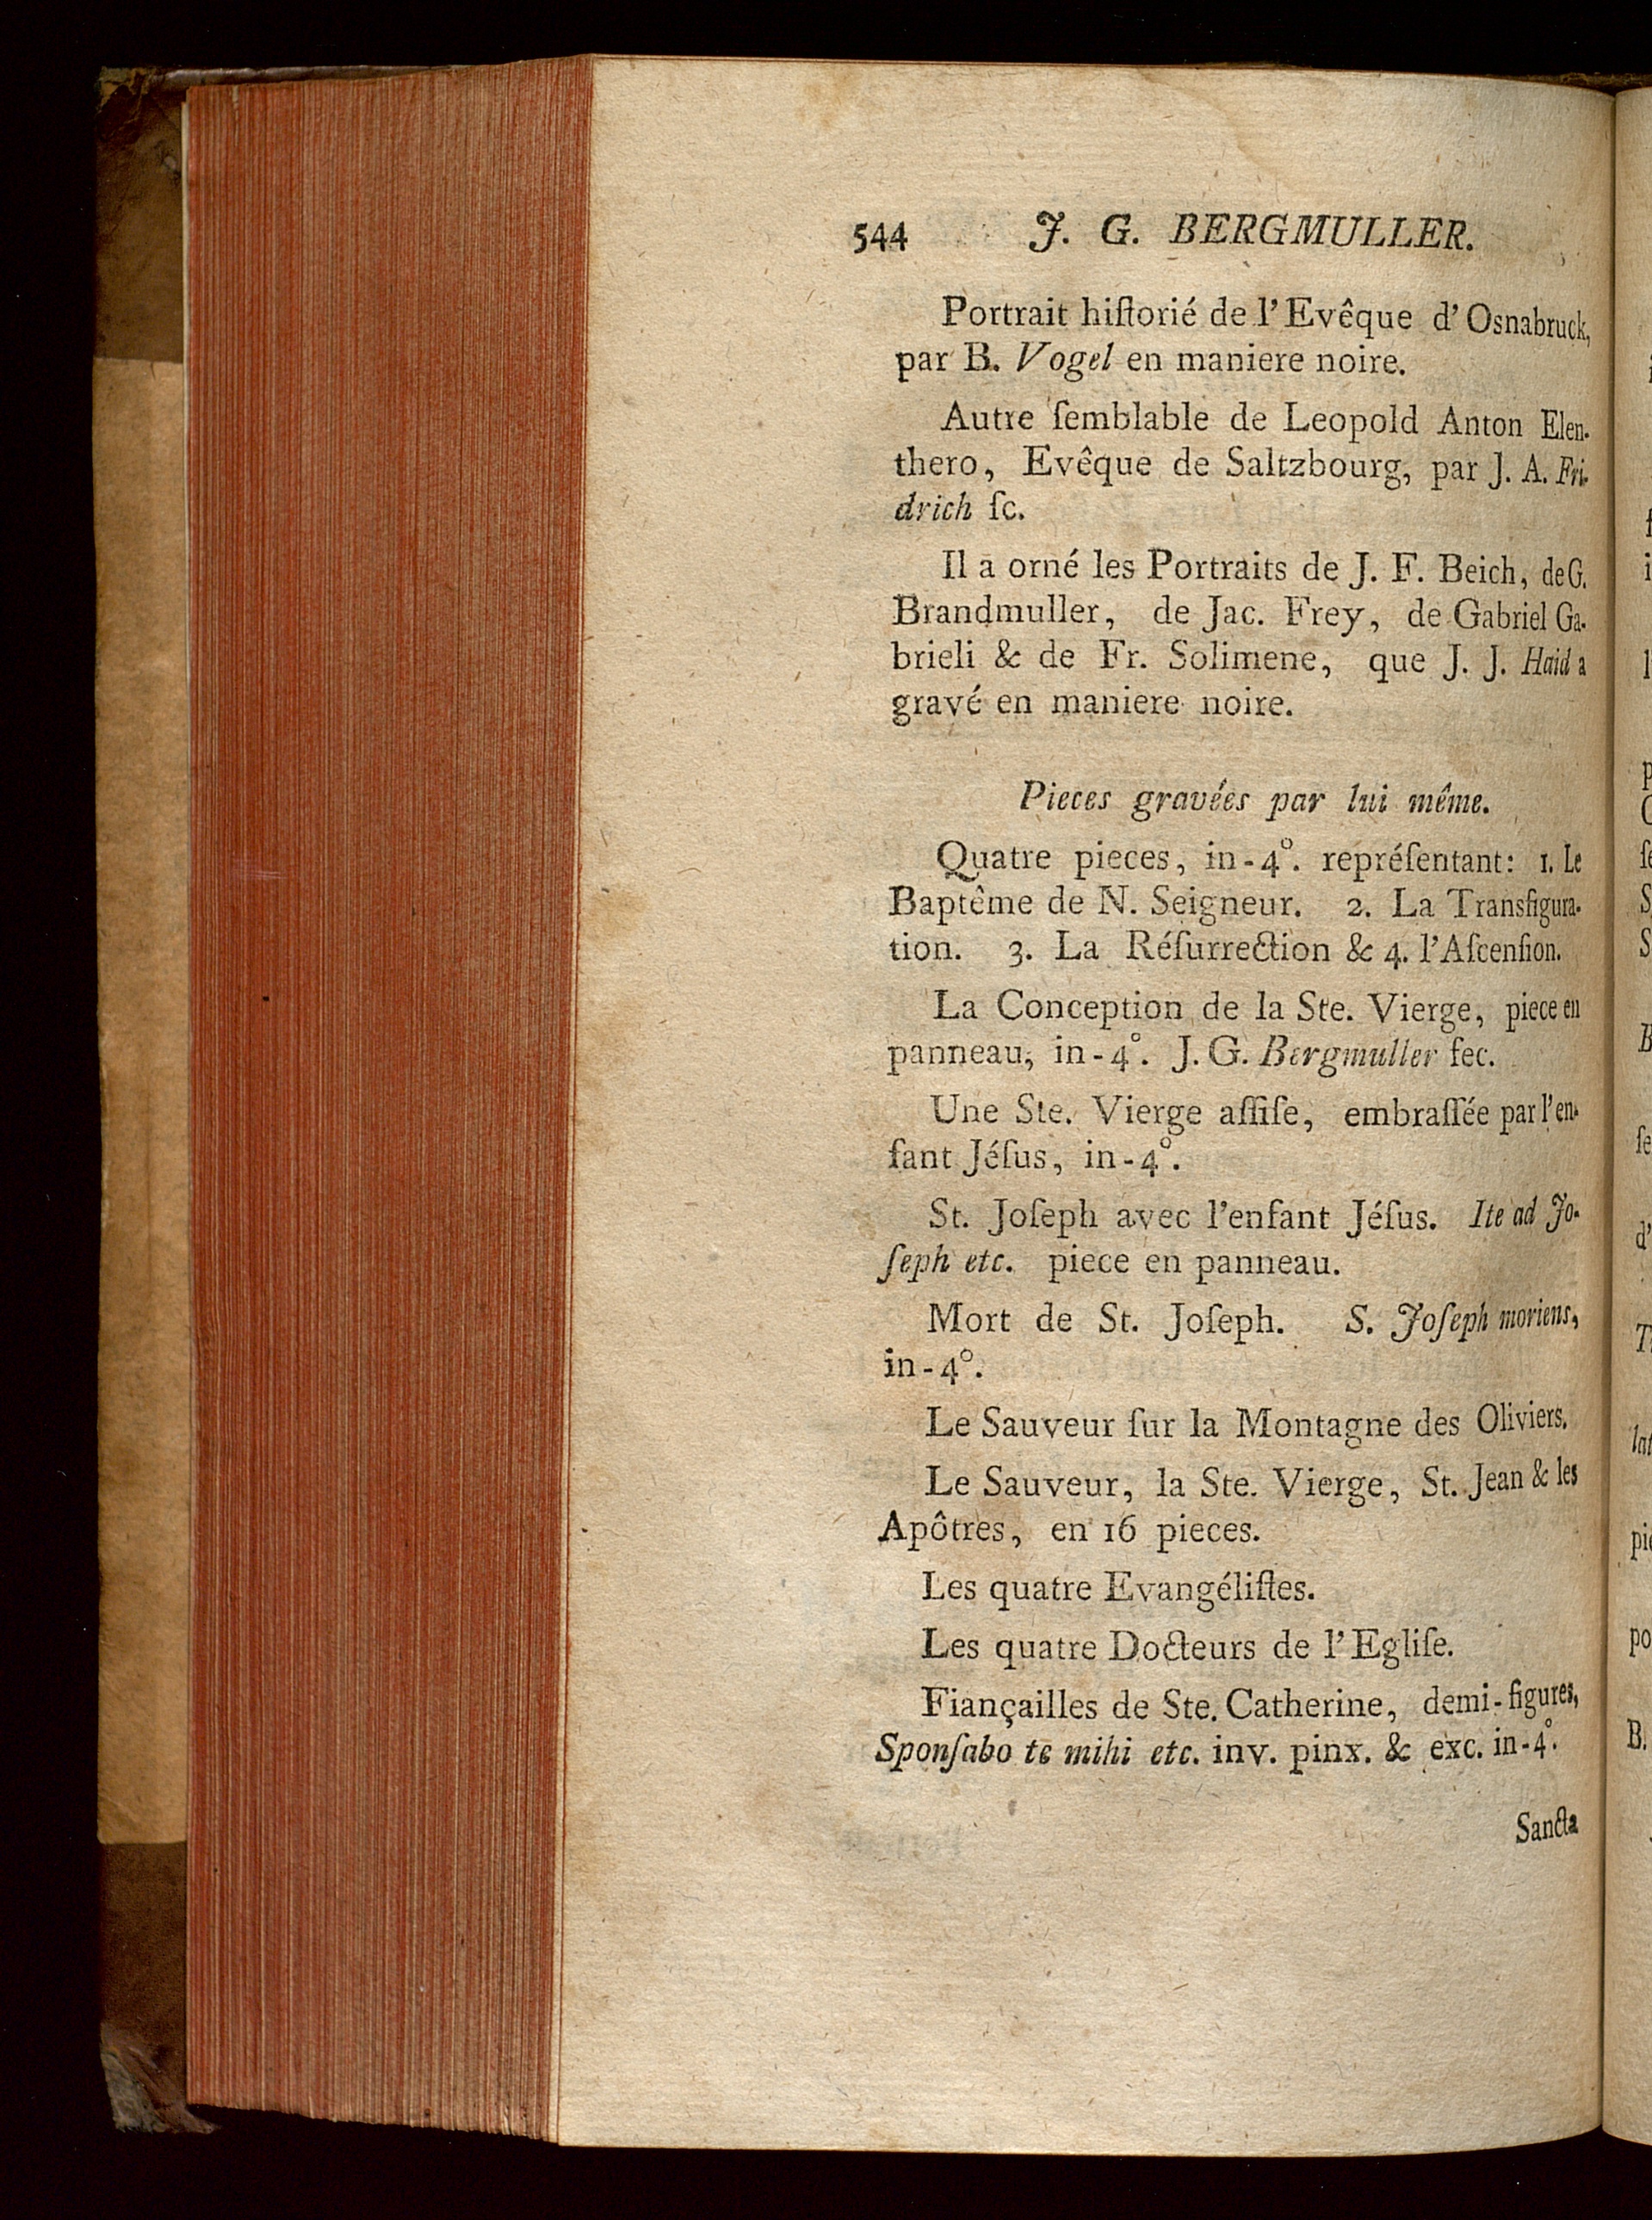 544 J. G. BERGMULLER.
Portrait hiſtorié de l'Evêque d'Osnabruck,
par B. Vogel en maniere noire.
Autre ſemblable de Leopold Anton Elen-
thero, Evêque de Saltzbourg, par J. A. Fri-
drich ſc.
Il a orné les Portraits de J. F. Beich, de G.
Brandmuller, de Jac. Frey, de Gabriel Ga-
brieli & de Fr. Solimene, que J. J. Haid a
gravé en maniere noire.
Pieces gravées par lui même.
Quatre pieces, in-4°. repréſentant: 1. Le
Baptême de N. Seigneur. 2. La Transfigura-
tion. 3. La Réſurrection & 4. l'Aſcenſion.
La Conception de la Ste. Vierge, piece en
panneau, in-4°. J. G. Bergmuller fec.
Une Ste. Vierge aſſiſe, embraſſée par l'en-
fant Jéſus, in-4°.
St. Joſeph avec l'enfant Jéſus. Ite ad Jo-
ſeph etc. piece en panneau.
Mort de St. Joſeph. S. Joſeph moriens,
in-4°.
Le Sauveur ſur la Montagne des Oliviers.
Le Sauveur, la Ste. Vierge, St. Jean & les
Apôtres, en 16 pieces.
Les quatre Evangéliſtes.
Les quatre Docteurs de l'Egliſe.
Fiançailles de Ste. Catherine, demi-figures,
Sponſabo te mihi etc. inv. pinx. & exc. in-4°.
Sancta